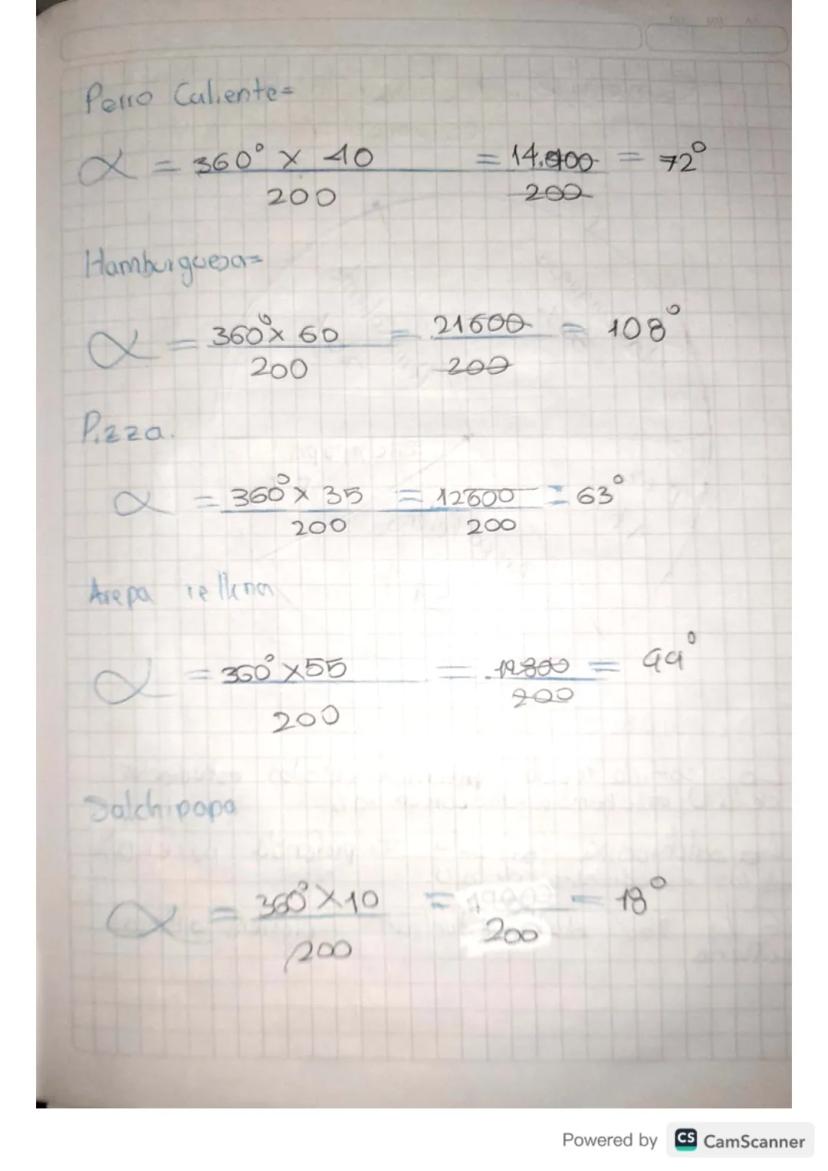 Perro Caliente=
α = 360° x 40 / 200 = 14.400 / 200 = 72°
Hamburguesa=
α = 360° x 60 / 200 = 21600 / 200 = 108°
Pizza.
α = 360° x 35 / 200 = 12600 / 200 = 63°
Arepa rellena
α = 360° x 55 / 200 = / 200 = 99°
Salchipapa
α = 360° x 10 / 200 = / 200 = 18°
Powered by CS CamScanner